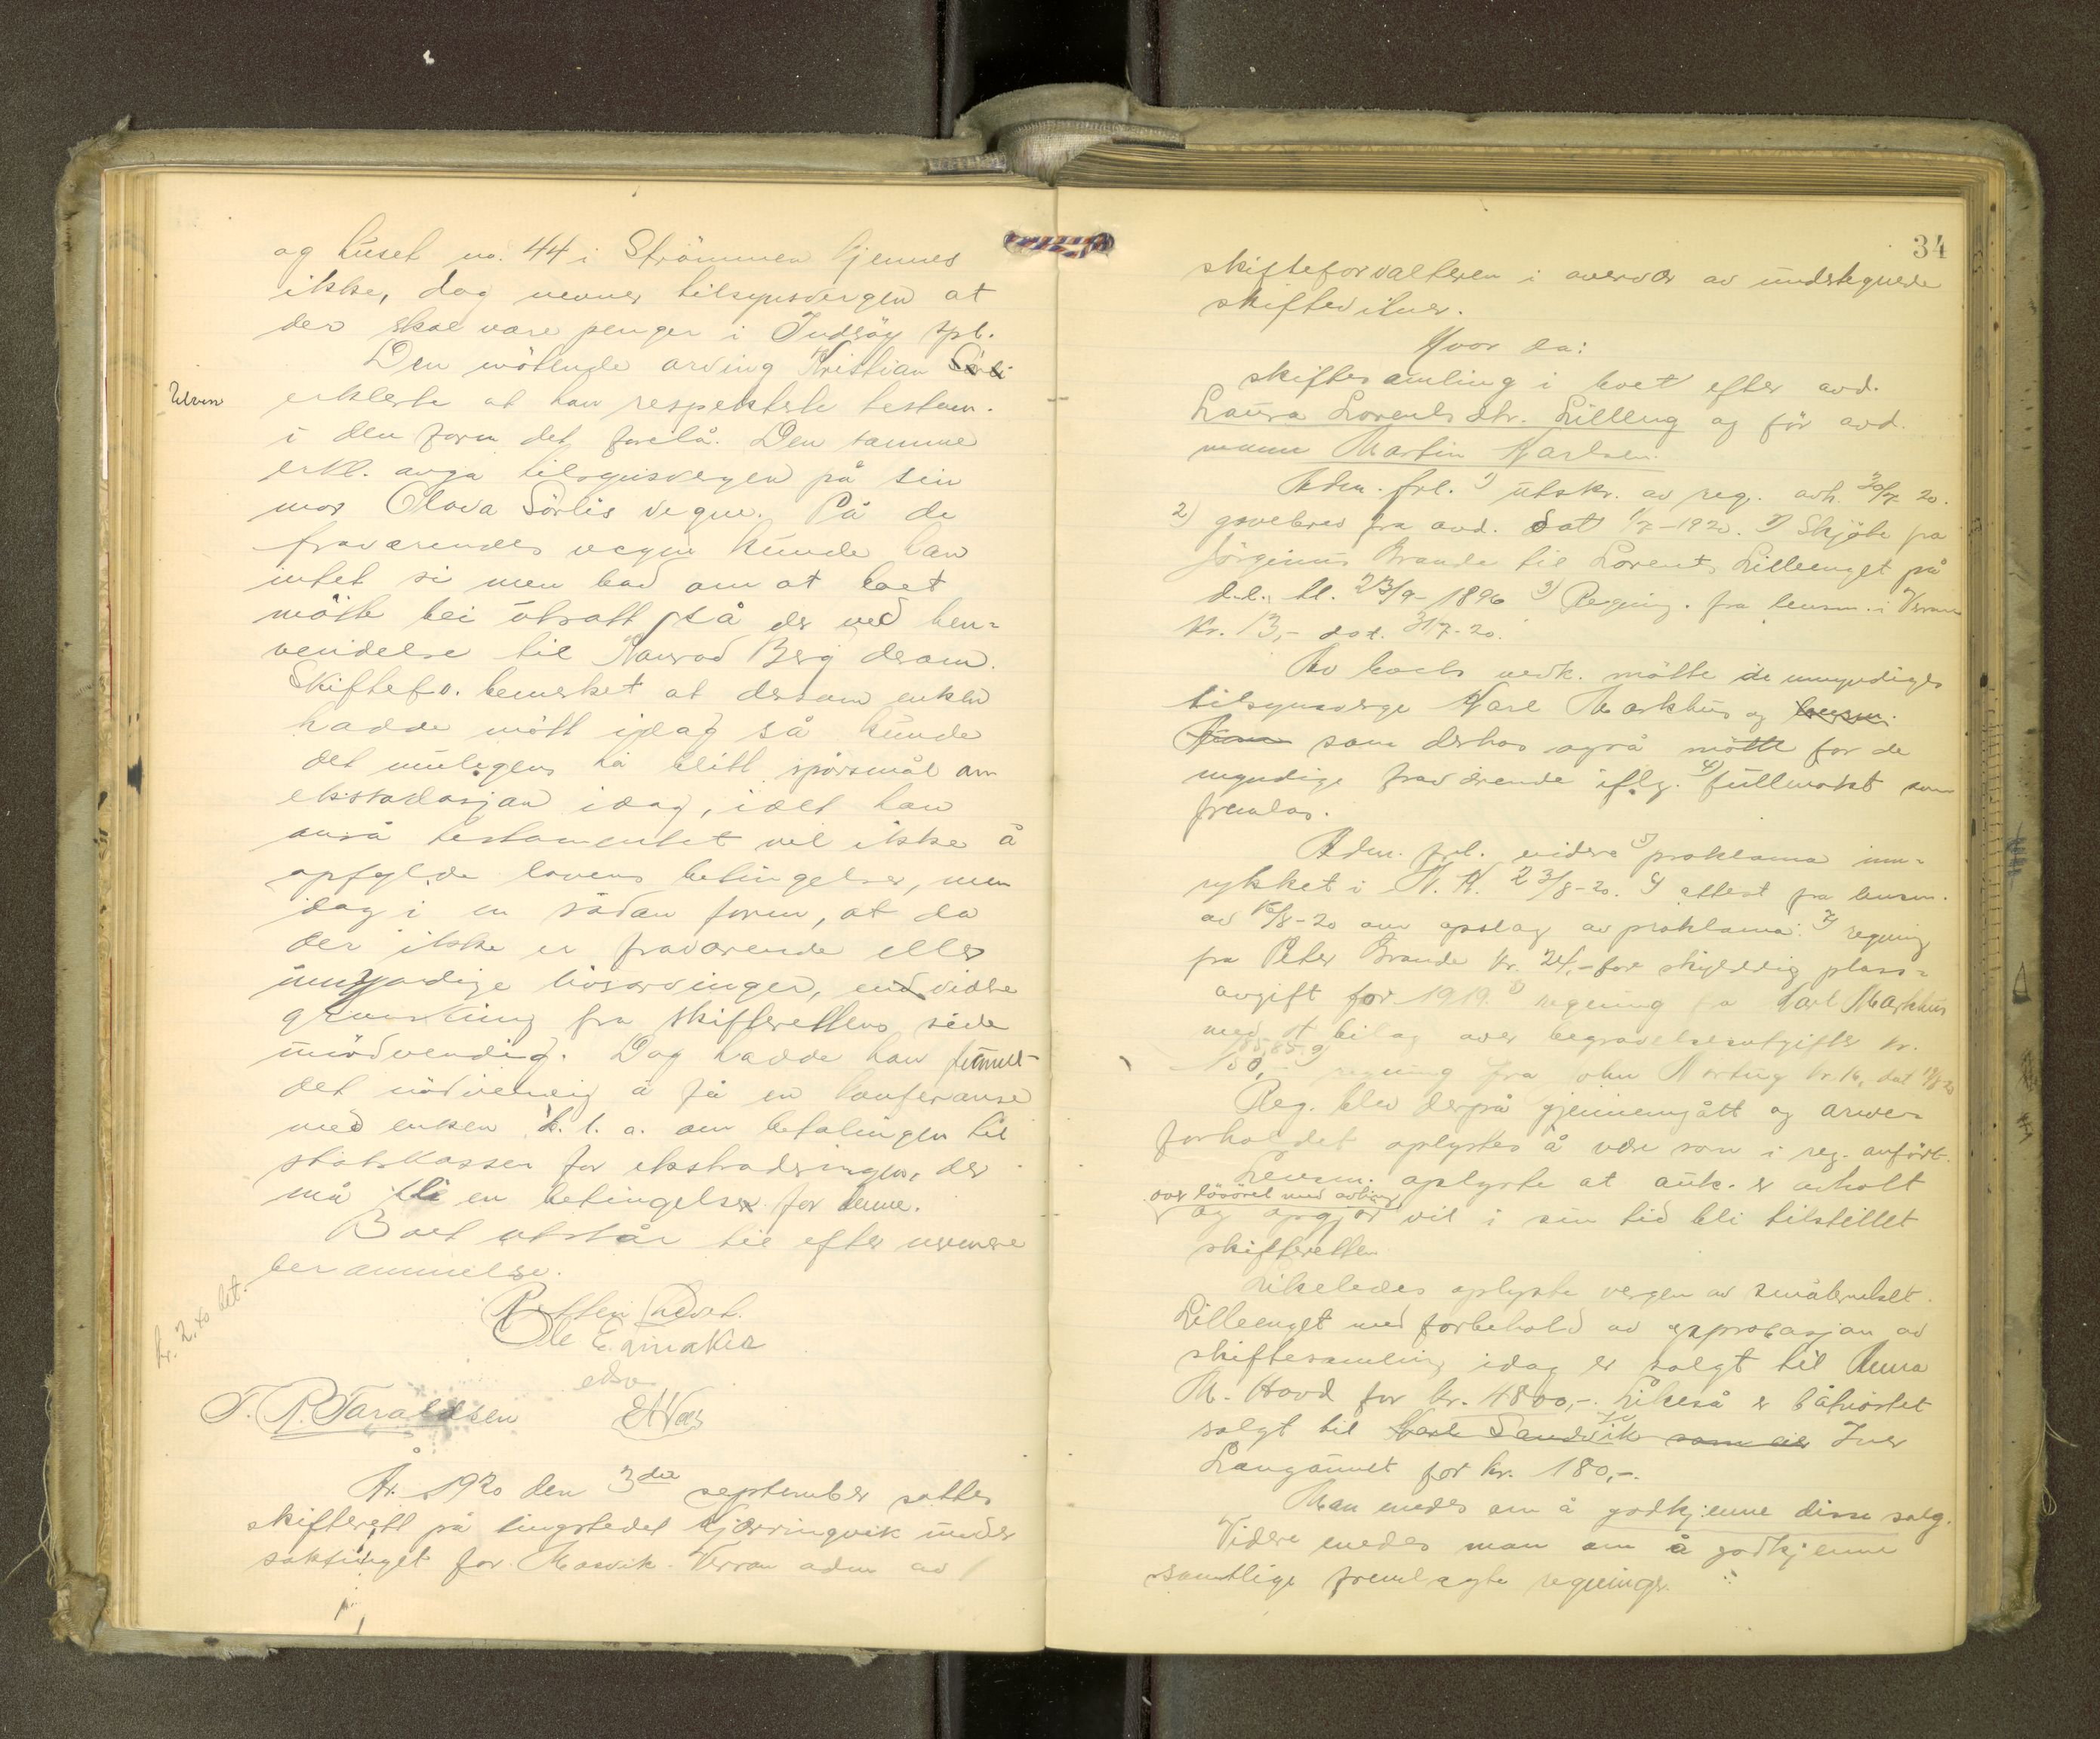 og huset no. 44 i Strömmen kjennes
ikke, dog mener tilsynsvergen at
der skal være penger i Inderöy spb.
Den mötende arving Kristian Sörli
Ulven
erklerte at han respekterte testam.
i den form det forelå. Den samme
erkl. avga tilsynsvergen på sin
mor Olava Sörlis vegne. På de
fraværendes vegne kunde han
intet si men bad om at boet
måtte bli utsatt så der ved hen-
vendelse til Konrad Berg derom.
Skiftefv. bemerket at dersom enken
hadde mött idag så kunde
det muligens ha blitt spörsmål om
ekstradasjon idag, idet han
anså testamentet vel ikke å
opfylde lovens betingelser, men
dog i en sådan form, at da
der ikke er fraværende eller
umyndige livsarvinger, end videre
granskning fra skifterettens side
unödvendig. Dog hadde han funnet
det nödvendig å få en konferanse
med enken bl. a. om betalingen til
statskassen for ekstraderingen, der
må bli en betingelse for denne.
Boet utstår til efter nærmere
berammelse.
kr. 2.40 bet.
Retten hevet.
Ole E. Aunaker
edsv.
T. R. Taraldsen EANæs
År 1920 den 3die september sattes
skifterett på tingstedet Kjerringvik under
saktinget for Mosvik-Verran adm av
34
skifteforvalteren i overvær av undertegnede
skiftevitner.
Hvor da:
skiftesamling i boet efter avd.
Laura Lorents dtr. Lilleng og för avd.
mann Martin Karlsen.
Adm. frl. 1) utskr. av reg. avh. 30/7 20.
2) gavebrev fra avd. dat 1/7-1920. 3) Skjöte fra
Jörginus Brande til Lorents Lilleenget på
d.e. tl. 23/9-1896 3) Regning. fra lensm. i Verran
kr. 13,- dat. 31/7-20.
Av boets vedk. mötte de umyndiges
tilsynsverge Karl Markhus og lensm.
som derhos også mötte for de
myndige fraværende iflg. 4) fullmakt som
fremlas.
Adm. frl. videre 5) proklama inn-
rykket i N. K. 23/8-20. 6) attest fra lensm.
av 16/8-20 om opslag av proklama. 7) regning
fra Peter Brande kr. 24,- for skyldig plass-
avgift for 1919. 8) regning fra Karl Markhus
med 4 bilag over begravelsesutgifter kr.
185,85. 9)
150,- regning fra John Hortug kr. 16, dat 12/8 20
Reg. blev derpå gjennemgått og arve-
forholdet oplystes å være som i reg. anfört.
Lensm. oplyste at auk. er avholt
over lösöret med avling
og opgjör vil i sin tid bli tilstillet
skifteretten.
Likeledes oplyste vergen at småbruket
Lilleenget med forbehold av approbasjon av
skiftesamling idag er solgt til Anna
M. Hovd for kr. 4800,-. Likeså er båtnöstet
solgt til Karl Sandvik som eier Iver
Langåunet for kr. 180,-.
Man enedes om å godkjenne disse salg.
Videre enedes man om å godkjenne
samtlige fremlagte regninger.